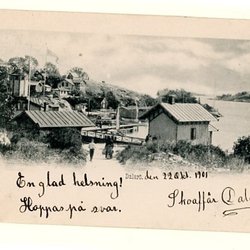 Dalarö. den 22 Okt. 1901
En glad helsning!
Hoppas på svar.
Skaffär Dala